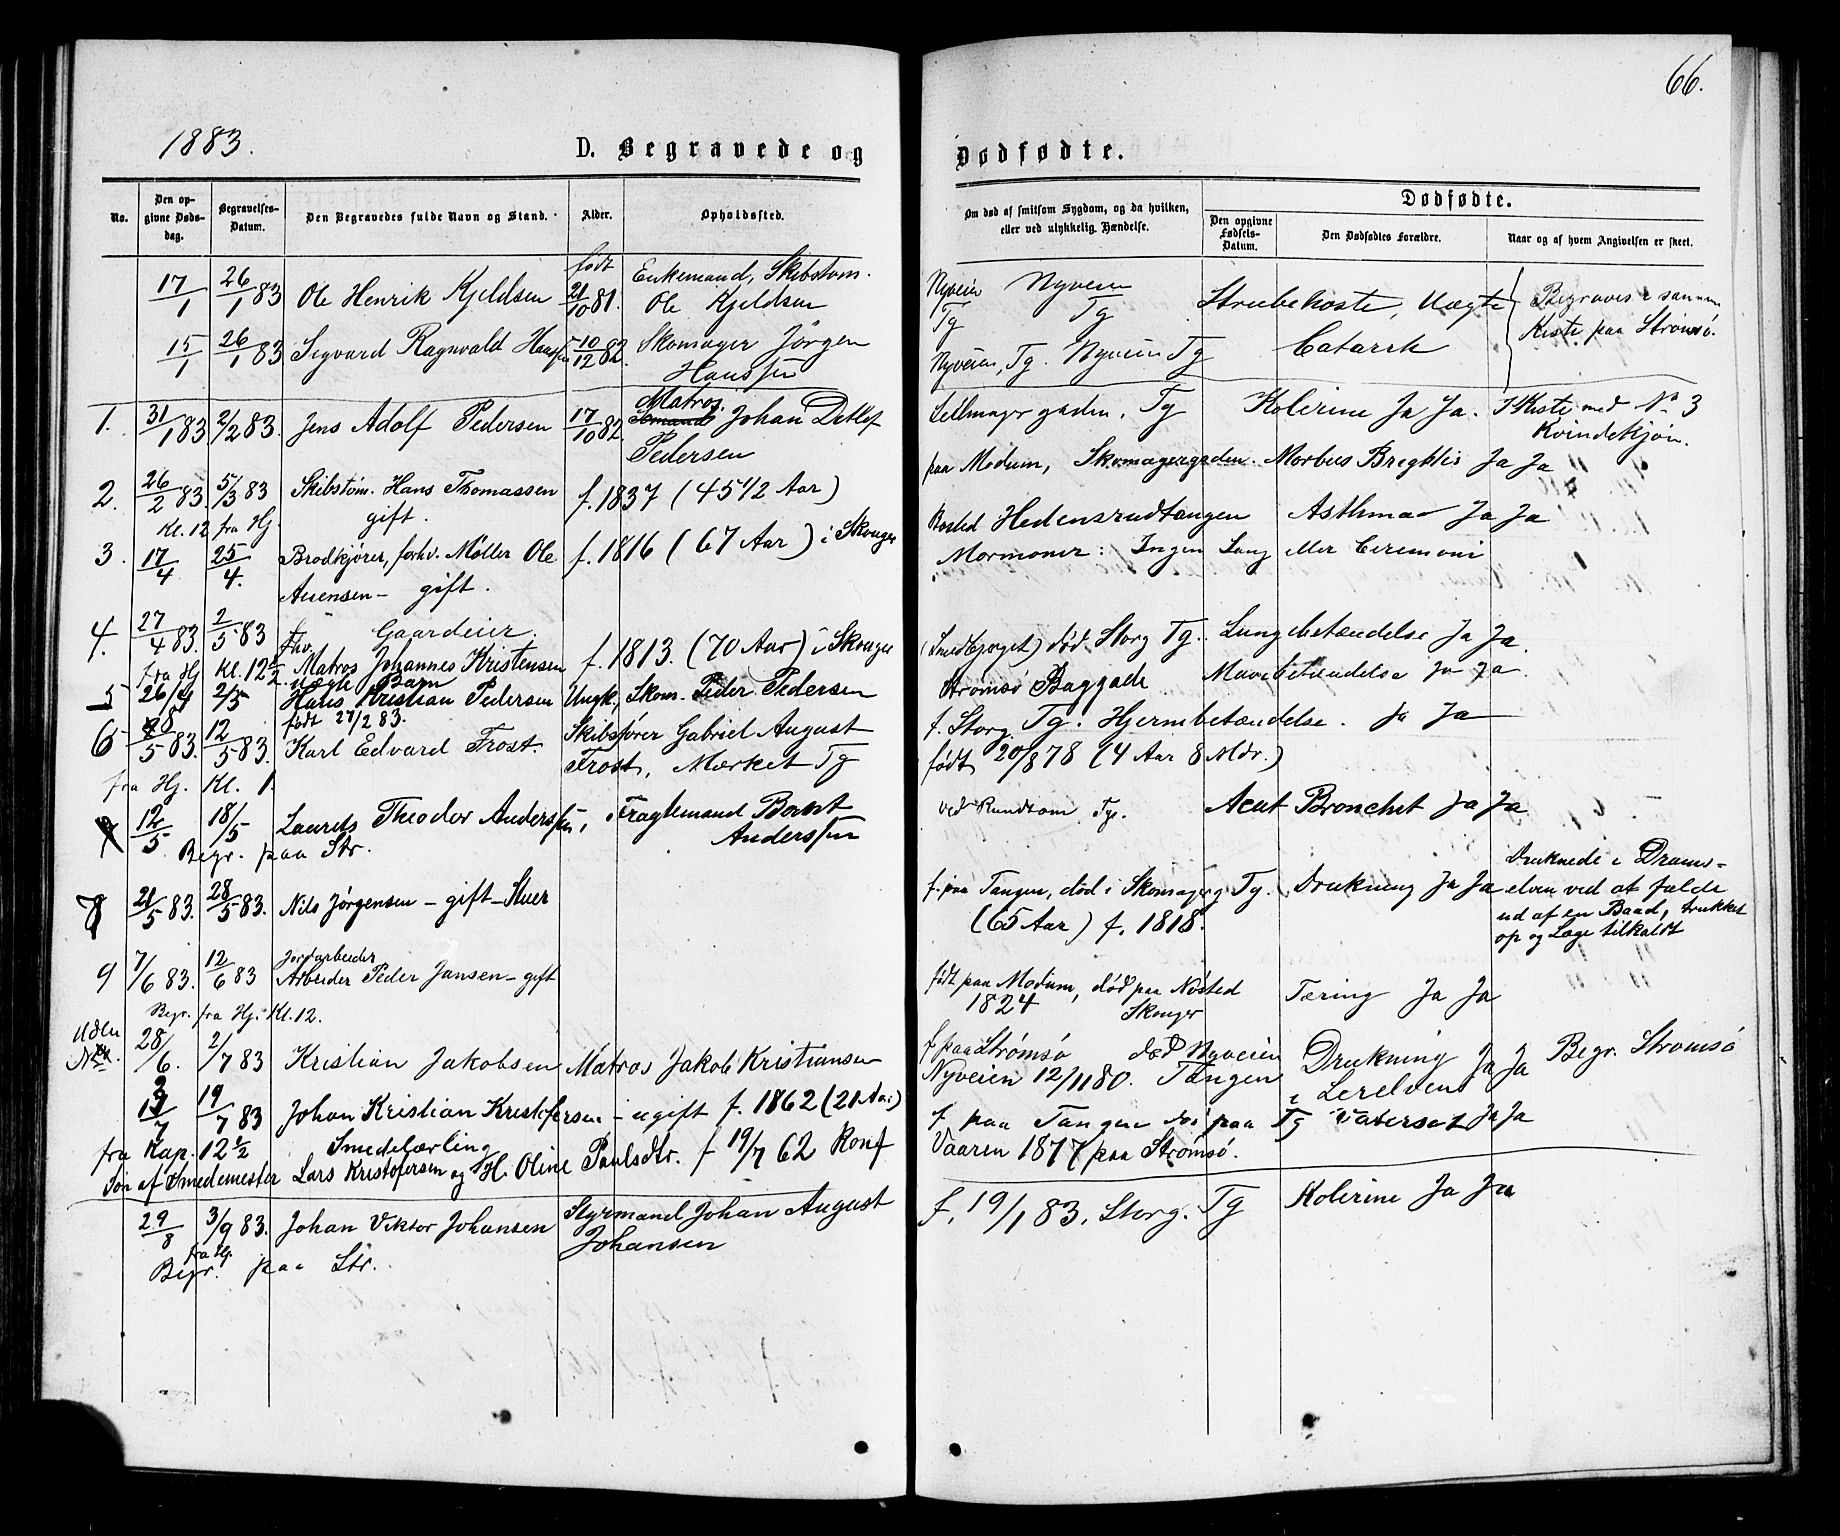 66.
1883.
D. Begravede og
Dødfødte.
No.
Den opgivne Dødsdag.
Begravelses-Datum.
Den Begravedes fulde Navn og Stand.
Alder.
Opholdssted.
Om død af smitsom Sygdom, og da hvilken, eller ved ulykkelig Hændelse.
Dødfødte.
Den opgivne Fødsels-Datum.
Den Dødfødtes Forældre.
Naar og af hvem Angivelsen er skeet.
17/1 26/1 83 Ole Henrik Kjeldsen født 21/10 81. Enkemand, Skibstøm.
Ole Kjeldsen
Nyveien Tg Nyveien Tg Strubehoste, Uægte
Begraves i samme
Kiste paa Strømsø.
15/1 26/1 83 Sigvard Ragnvald Hanssen 10/12 82. Skomager Jørgen
Hanssen
Nyveien, Tg. Nyveien Tg Catarrh
1. 31/1 83 2/2 83. Jens Adolf Pedersen 17/10 82 Matros. Johan Detlef
Pedersen
gaden. Tg Kolerine Ja Ja. I Kiste med No 3
Kvindekjøn.
2. 26/2 83. 5/3 83 Skibstøm. Hans Thomassen f. 1837 (45 1/2 Aar)
Kl. 12 fra Hj. gift.
paa Modum, Skomagergaden. Morbus Brightii Ja Ja
3. 17/4 25/4. Brødkjører, forhv. Møller Ole f. 1816 (67 Aar) i Skouger
Auensen - gift.
Bosted Hedensrudtangen Asthma Ja Ja
Mormoner: Ingen Sang eller Ceremoni
4. 27/4 83. 2/5 83 Gaardeier.
fhv. Matros Johannes Kristensen f. 1813. (70 Aar) i Skouger
fra Hj Kl. 12 1/2.
(Smedbjerget) død Storg Tg. Lungebetændelse Ja Ja.
uægte Barn
5 26/4 2/5 Hans Kristian Pedersen Ungk, Skom. Peder Pedersen
født 27/2 83.
Strømsø Baggade Mavebetændelse Ja Ja.
6 8/5 83. 12/5 83. Karl Edvard Frost. Skibsfører Gabriel August
Frost, Mærket Tg
fra Hj. Kl. 1.
f. Storg. Tg. Hjernebetændelse. Ja Ja
født 20/8 78 (4 Aar 8 Mdr.)
7 12/5 18/5 Laurits Theodor Anderssen, Fragtemand Bernt
Anderssen
Begr. paa Str.
ved Rundtom Tg. Acut Bronchit Ja Ja
8 21/5 83. 28/5 83. Nils Jørgensen - gift - Stuer
f. paa Tangen, død i Skomagerg Tg. Drukning Ja Ja
(65 Aar) f. 1818.
Druknede i Drams-
elven ved at falde
ud af en Baad, trukket
op og Læge tilkaldt
9 7/6 83. 12/6 83 Jordarbeider
Arbeider Peder Jansen - gift
Begr. fra Hj. Kl. 12.
født paa Modum, død paa Nøsted Tæring Ja Ja
1824 Skouger
Uden
No. 28/6. 2/7 83 Kristian Jakobsen Matros Jakob Kristiansen
f paa Strømsø død Nyveien Drukning Ja Ja Begr. Strømsø
Nyveien 12/11 80. Tangen i Lerelven
19/7 83 Johan Kristian Kristofersen - ugift f. 1862 (21 Aar)
fra Kap. 12 1/2 Smedelærling
Søn af Smedemester Lars Kristofersen og H. Oline Paulsdtr. f 19/7 62 Konf
f paa Tangen død paa Tg Ja Ja
Vaaren 1877 paa Strømsø.
29/8 3/9 83. Johan Viktor Johansen Styrmand Johan August
Johansen
fra Hj.
Begr. paa Str.
f. 19/1 83. Storg. Tg Kolerine Ja Ja